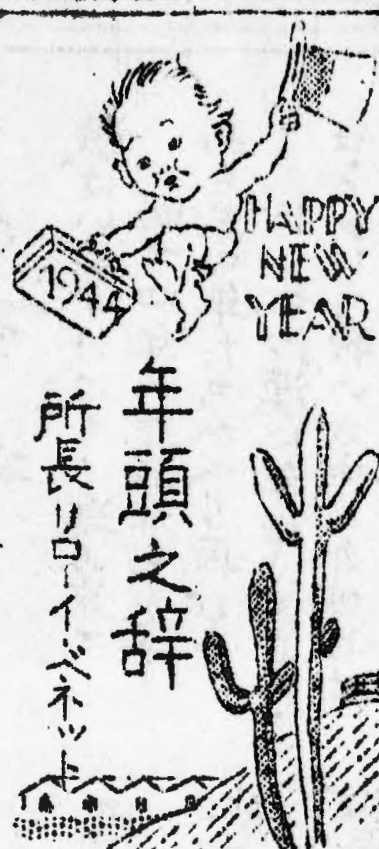 1944
HAPPY
NEW
YEAR
年頭之辞
所長リローイ・ベネット